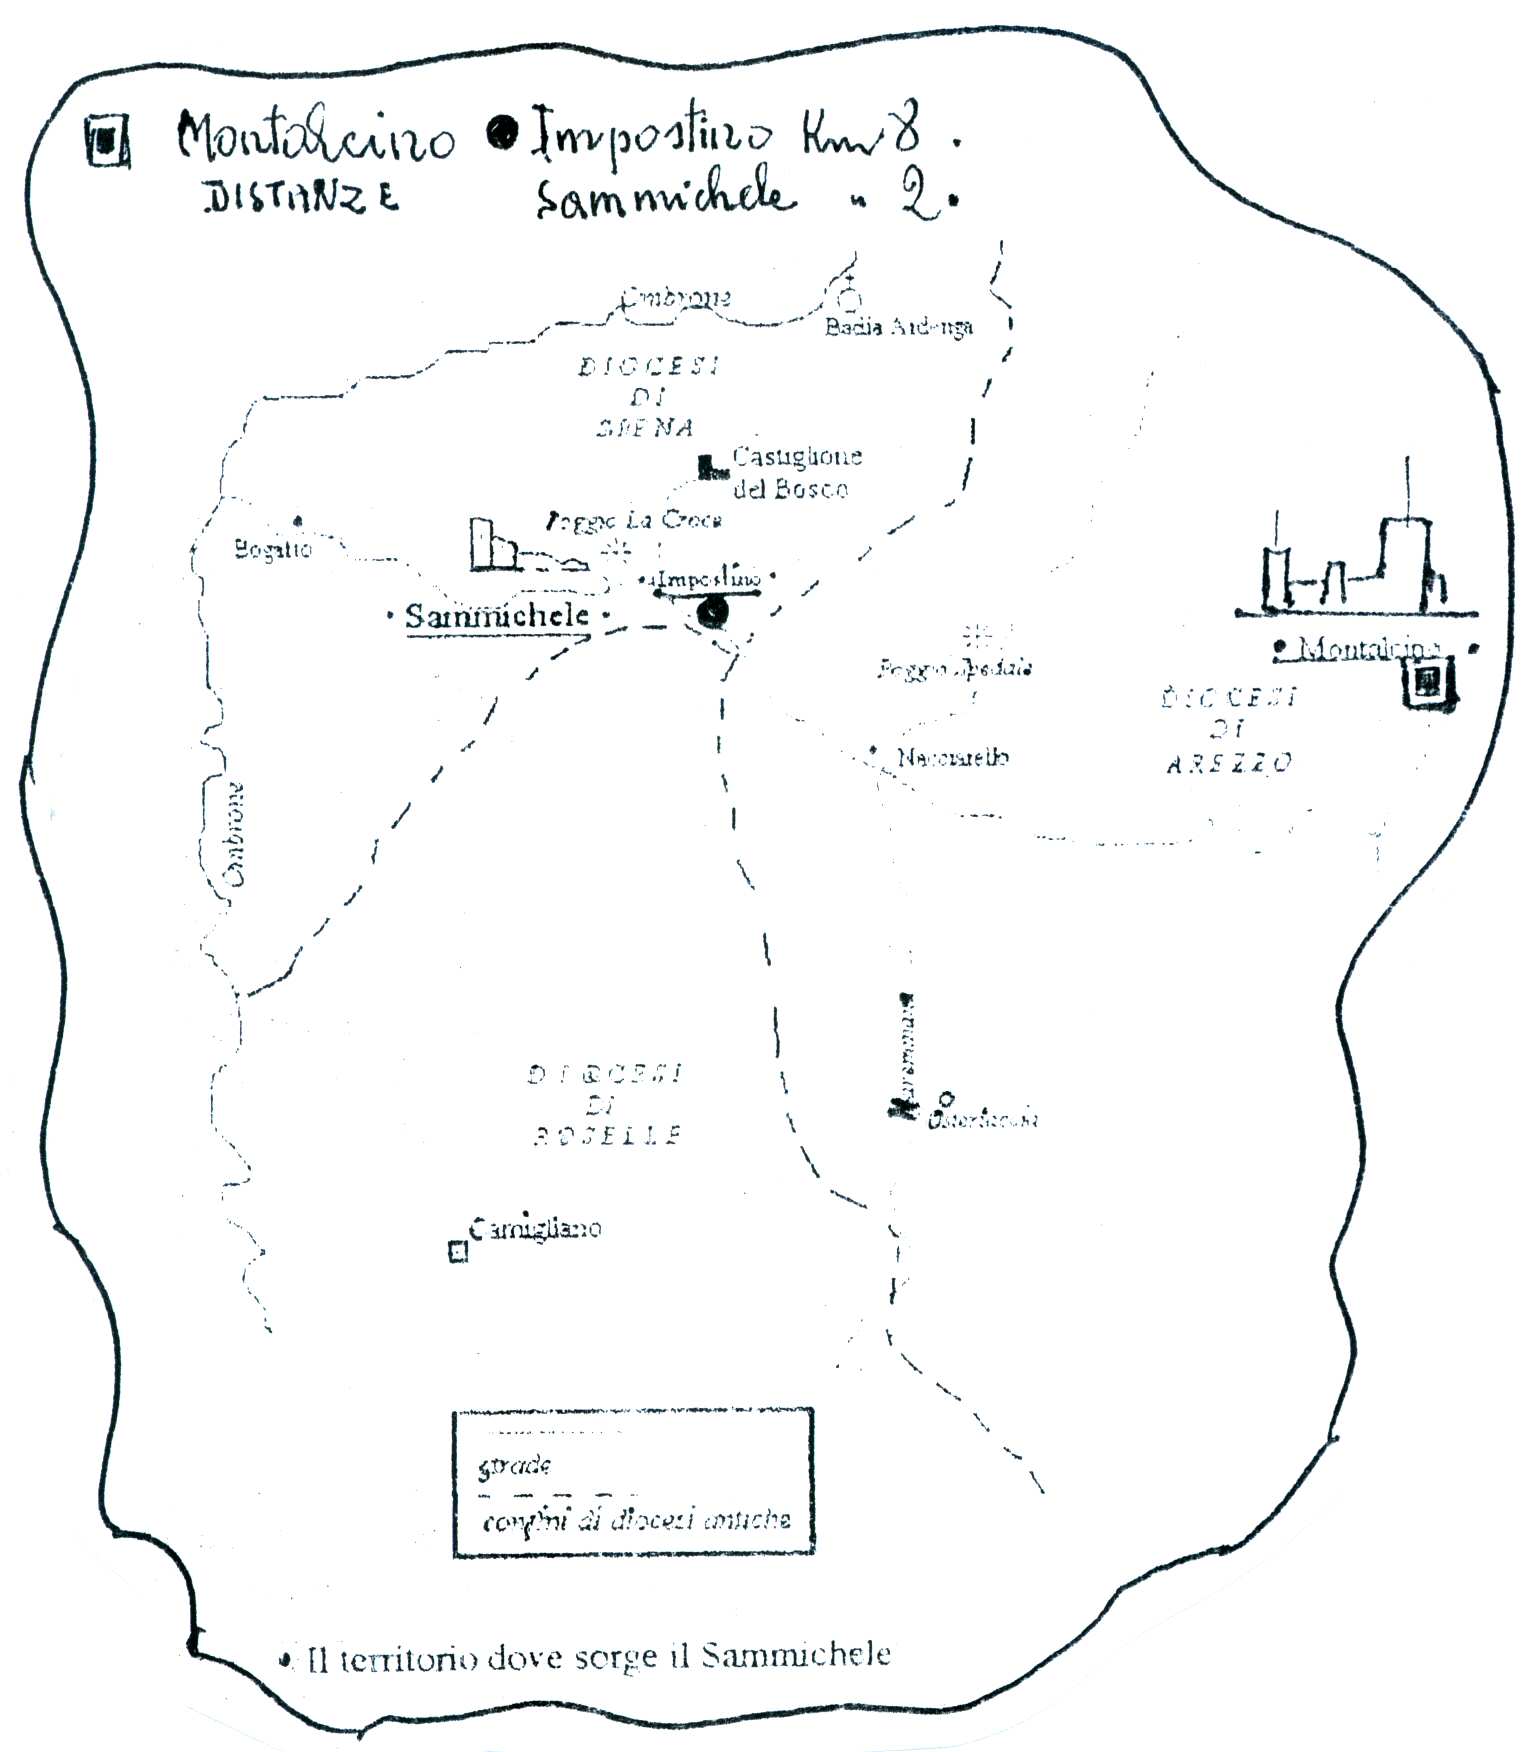 Montalcino Impostino Km 8.
DISTANZE Sammichele " 2.
Ombrone
Badia Ardenga
DIOCESI
DI
SIENA
Castiglione
del Bosco
Poggio La Croce
Bogatto
Impostino
Sammichele
Montalcino
Poggio Spedale
DIOCESI
DI
AREZZO
Nacciarello
Ombrone
Maremmana
DIOCESI
DI
ROSELLE
Camigliano
strade
confini di diocesi antiche
• Il territorio dove sorge il Sammichele